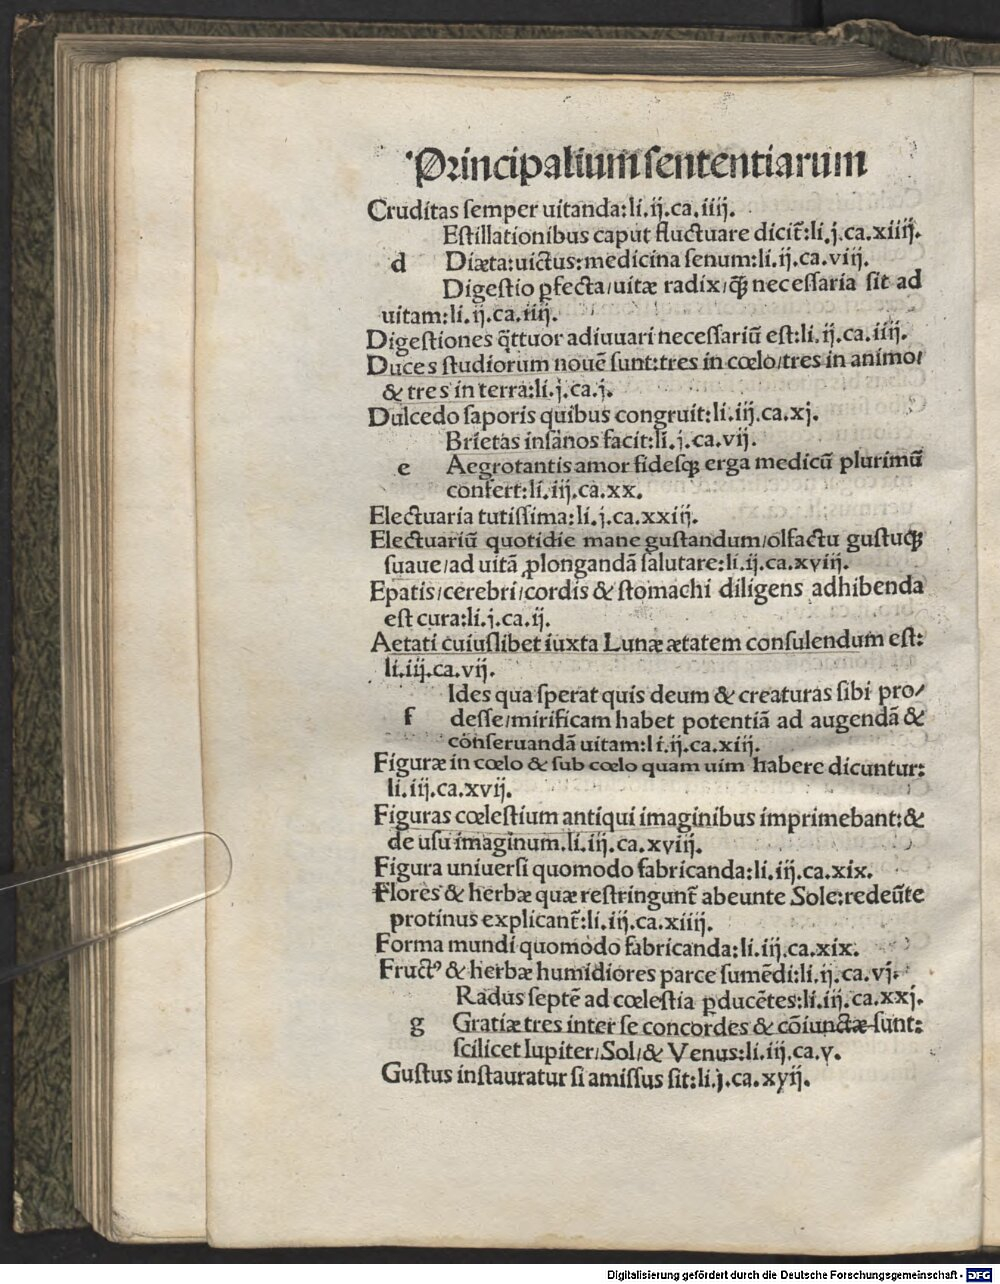 Principalium ſententiarum
Cruditas ſemper uitanda:li.ij.ca.iiij.
Eſtillationibus caput fluctuare dicit̃:li.j.ca.xiiij.
d Diæta:uictus:medicina ſenum:li.ij.ca.viij.
Digeſtio ꝑfecta/uitæ radix/ꝙ̃ neceſſaria ſit ad
uitam:li.ij.ca.iiij.
Digeſtiones q̃ttuor adiuuari neceſſariũ eſt:li.ij.ca.iiij.
Duces ſtudiorum nouẽ ſunt:tres in cœlo/tres in animo/
& tres in terra:li.j.ca.j.
Dulcedo ſaporis quibus congruit:li.iij.ca.xj.
Brietas inſanos facit:li.j.ca.vij.
e Aegrotantis amor fideſqꝫ erga medicũ plurimũ
confert:li.iij.ca.xx.
Electuaria tutiſſima:li.j.ca.xxiij.
Electuariũ quotidie mane guſtandum/olfactu guſtuqꝫ
ſuaue/ad uitã ꝓlongandã ſalutare:li.ij.ca.xviij.
Epatis/cerebri/cordis & ſtomachi diligens adhibenda
eſt cura:li.j.ca.ij.
Aetati cuiuſlibet iuxta Lunæ ætatem conſulendum eſt:
li.iij.ca.vij.
Ides qua ſperat quis deum & creaturas ſibi pro/
f deſſe/mirificam habet potentiã ad augendã &
conſeruandã uitam:li.ij.ca.xiij.
Figuræ in cœlo & ſub cœlo quam uim habere dicuntur:
li.iij.ca.xvij.
Figuras cœleſtium antiqui imaginibus imprimebant:&
de uſu imaginum.li.iij.ca.xviij.
Figura uniuerſi quomodo fabricanda:li.iij.ca.xix.
Flores & herbæ quæ reſtringunt̃ abeunte Sole:redeũte
protinus explicant̃:li.iij.ca.xiiij.
Forma mundi quomodo fabricanda:li.iij.ca.xix.
Fructꝰ & herbæ humidiores parce ſumẽdi:li.ij.ca.vj.
Radus ſeptẽ ad cœleſtia ꝑducẽtes:li.iij.ca.xxj.
g Gratiæ tres inter ſe concordes & cõiunctæ ſunt:
ſcilicet Iupiter/Sol/& Venus:li.iij.ca.v.
Guſtus inſtauratur ſi amiſſus ſit:li.j.ca.xvij.
Digitalisierung gefördert durch die Deutsche Forschungsgemeinschaft - DFG